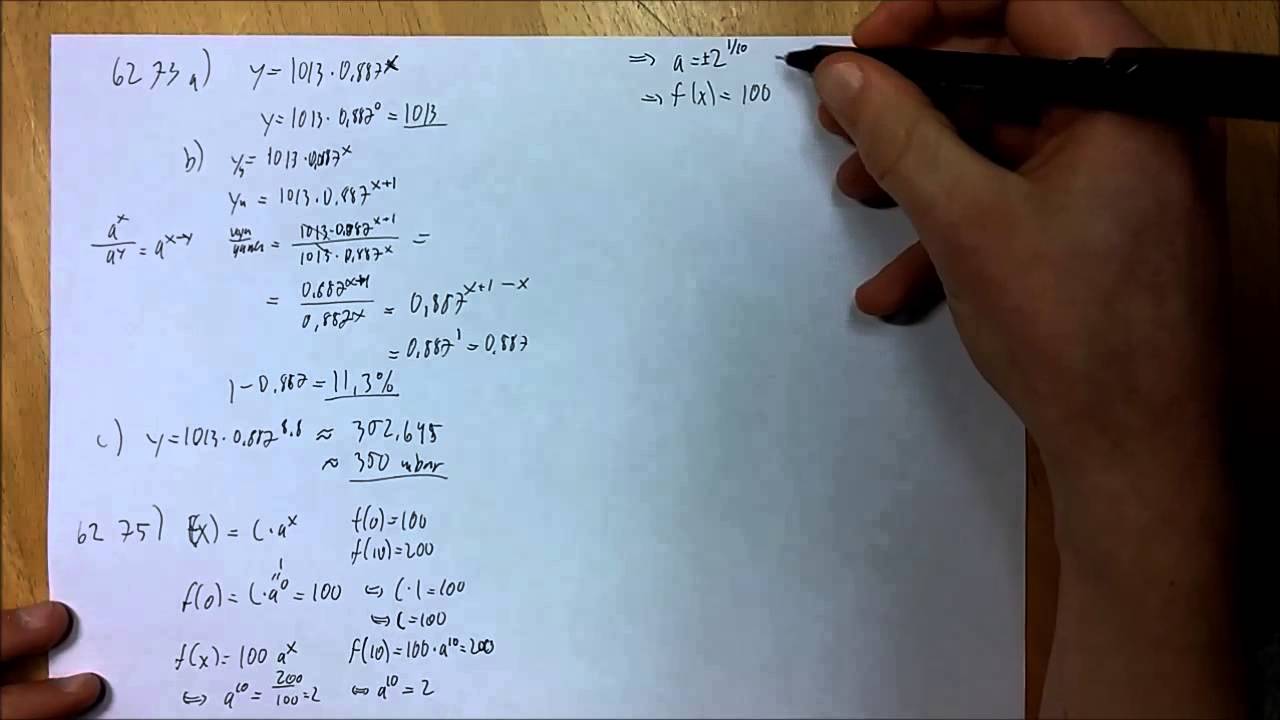 6273 a) y = 1013 · 0,887^x
y = 1013 · 0,887^0 = 1013
b) y = 1013 · 0,887^x
y = 1013 · 0,887^(x+1)
a^x / a^y = a^(x-y)
= 1013 · 0,887^(x+1) / 1013 · 0,887^x =
= 0,887^(x+1) / 0,887^x = 0,887^(x+1-x)
= 0,887^1 = 0,887
1 - 0,887 = 11,3%
c) y = 1013 · 0,887^8,8 ≈ 352,645
≈ 350 mbar
6275) f(x) = C · a^x f(0) = 100
f(10) = 200
1
f(0) = C · a^0 = 100 ⇔ C · 1 = 100
⇔ C = 100
f(x) = 100 a^x f(10) = 100 · a^10 = 200
⇔ a^10 = 200/100 = 2 ⇔ a^10 = 2
⇒ a = ±2^(1/10)
⇒ f(x) = 100